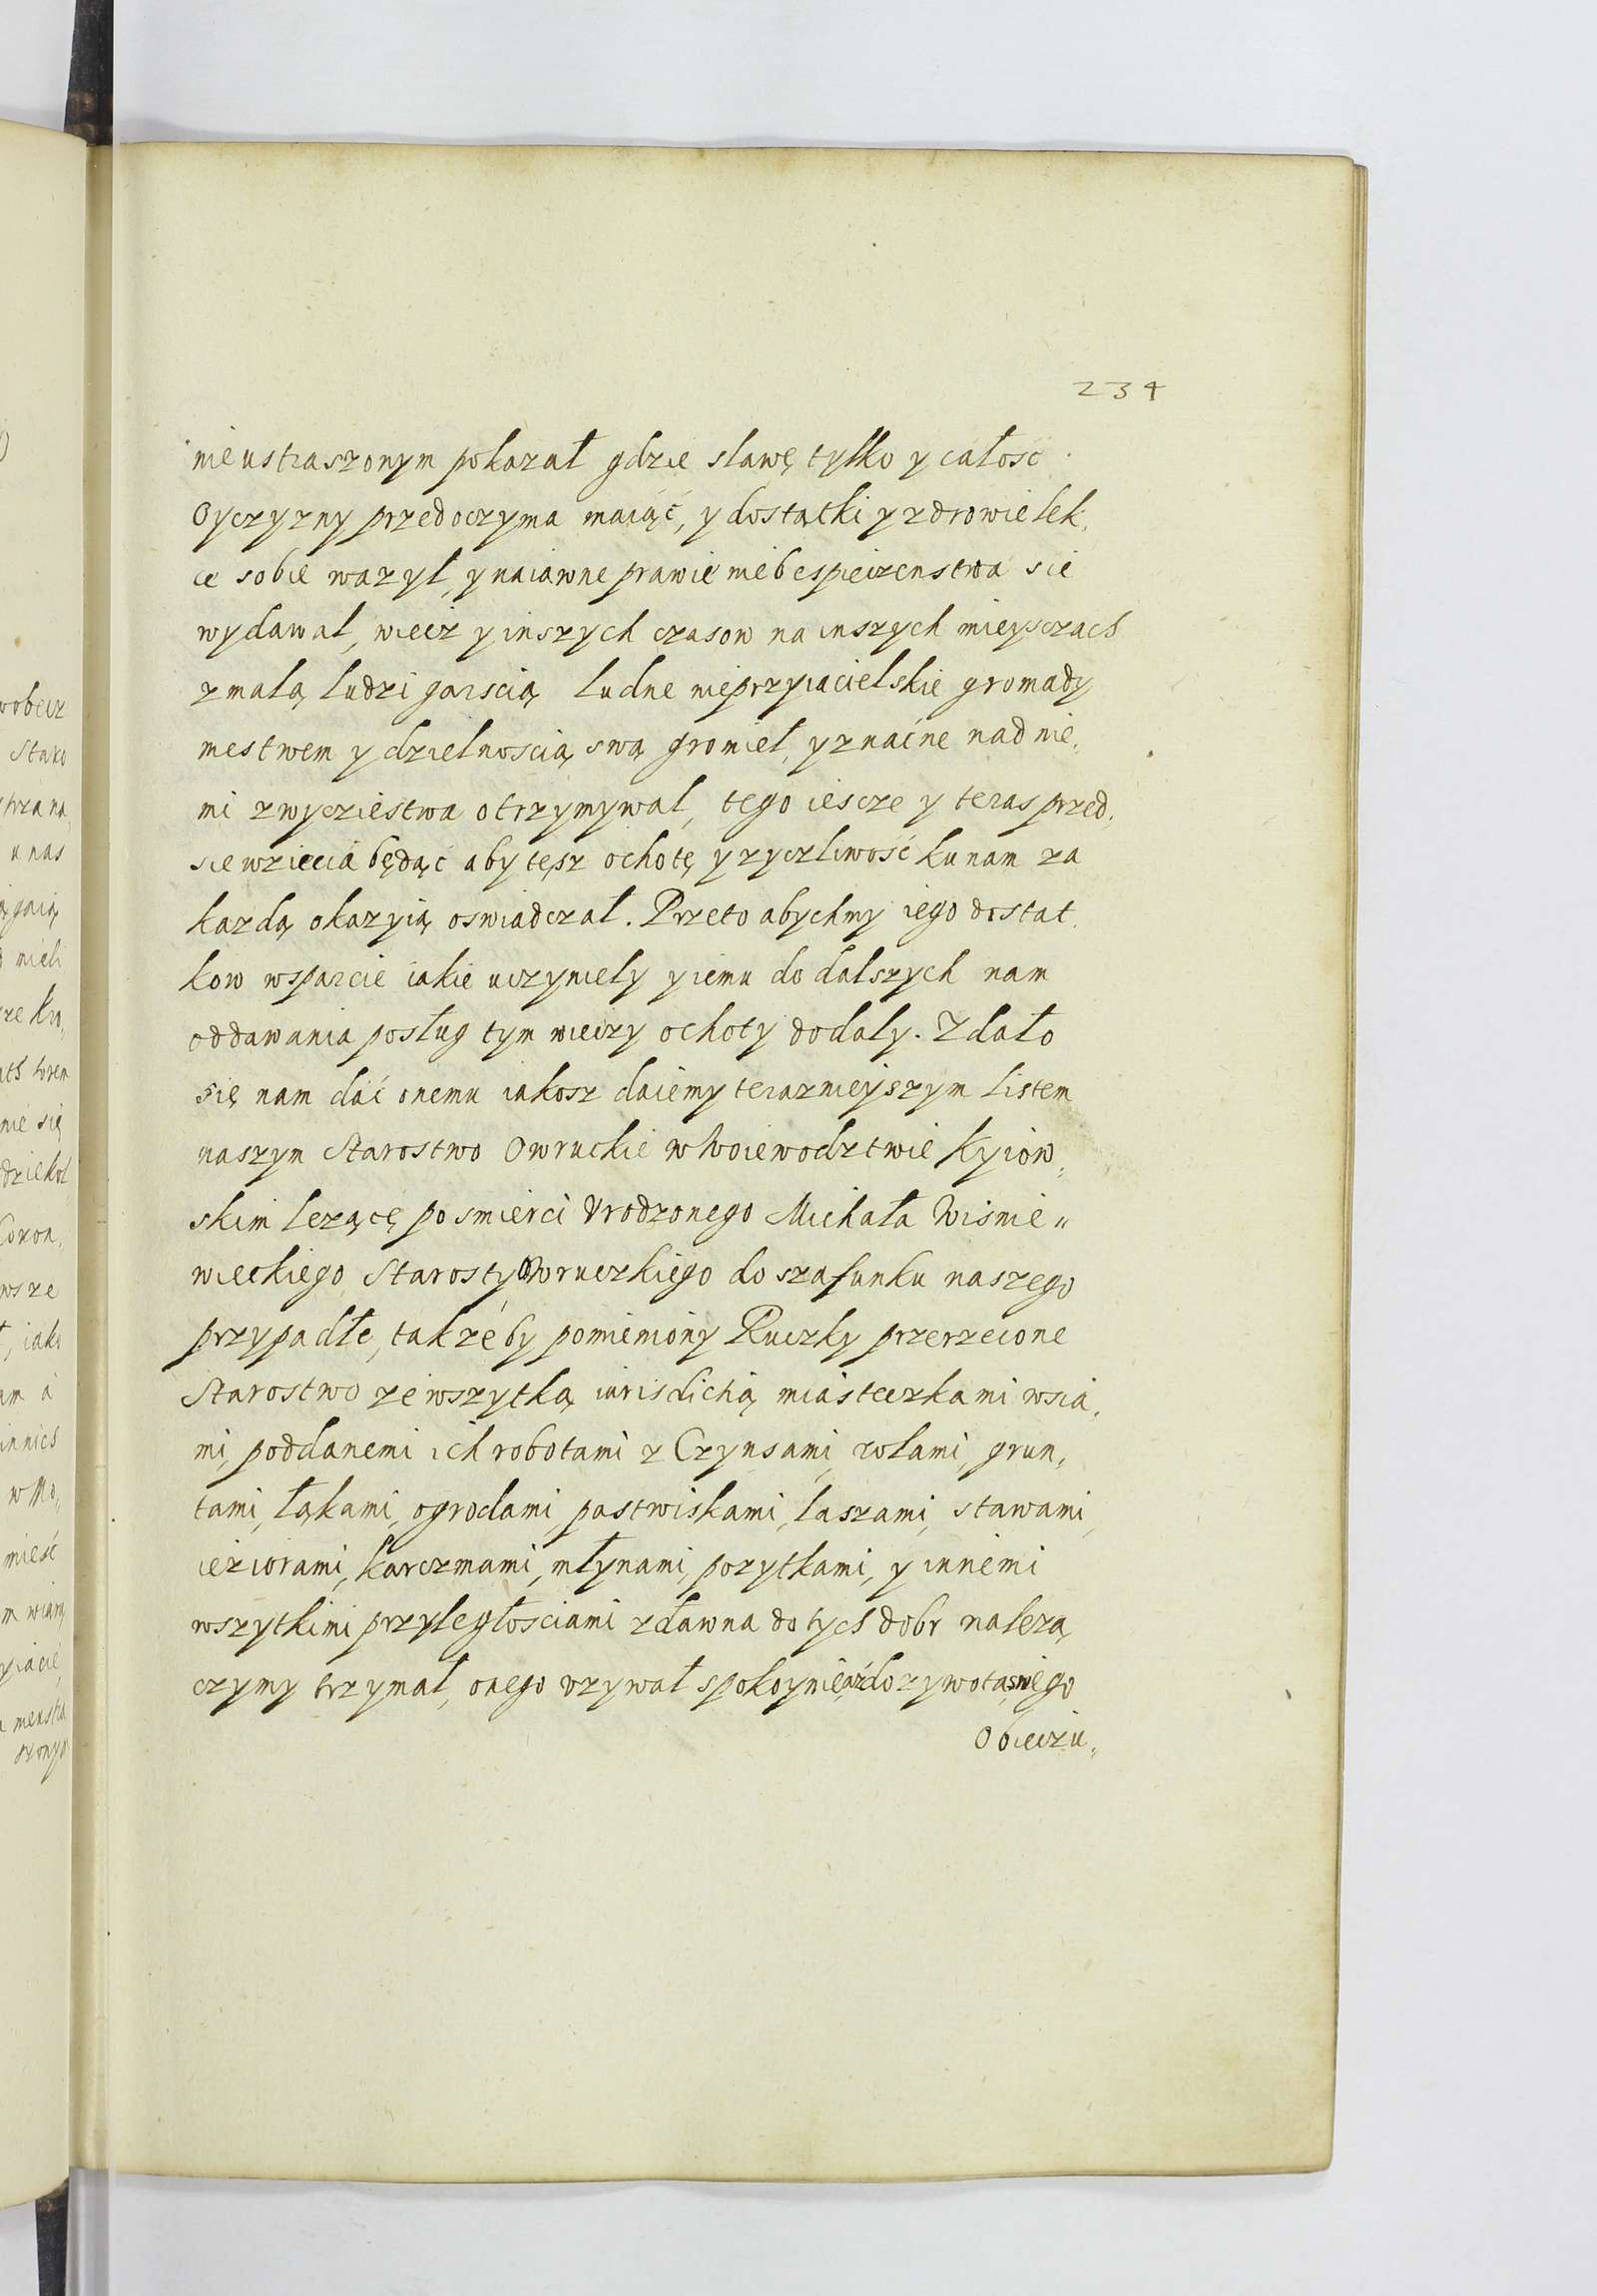 234
nieustraszonym pokazał gdzie sławę tylko y całosc
Oyczyzny przedoczyma maiąć, y dostątki y zdrowie lek,
ce sobie wazył, y naiawne prawie niebespieczenstwa sie
wydawał, wiecz y inszych czasow na inszych mieysczach
z małą ludzi garscią ludne nieprzyiacielskie gromady
mestwem y dzielnoscią swą gromieł, y znaćne nad nie,
mi zwyciestwa otrzymywał, tego iescze y teras przed,
siewziecia będąć aby tęsz ochotę y zyczliwość ku nam za
kazdą okazyią oswiadczał. Przeto abychmy iego dostat,
kow wsparcie iakie uczyniely y iemu do dalszych nam
oddawania posług tym wieczy ochoty dodaly. Zdało
się nam dać onemu iakosz daiemy terazniejszym listem
naszym Starostwo Owruckie w Woiewodztwie Kyiow,
skim lezącę po smierci Urodzonego Michała Wiśnie„
wieckiego Starosty Owruczkiego do szafunku naszego
przypadłe, takze by pomieniony Ruczky przerzecone
Starostwo ze wszytką iurisdichą miasteczkami wsia,
mi, poddanemi ich robotami z Czynsami, rolami, grun,
tami, łąkami, ogrodami, pastwiskami, laszami, stawami,
ieziorami, karczmami, młynami, pozytkami, y innemi
wszytkimi przyległosciami zdawna do tych dobr naleza,
czymy trzymał, onego uzywał spokoynie aż do zywota swego
Obieczu„
wobecz
Staro
u nas
nie się
wsze
, iako
mieść